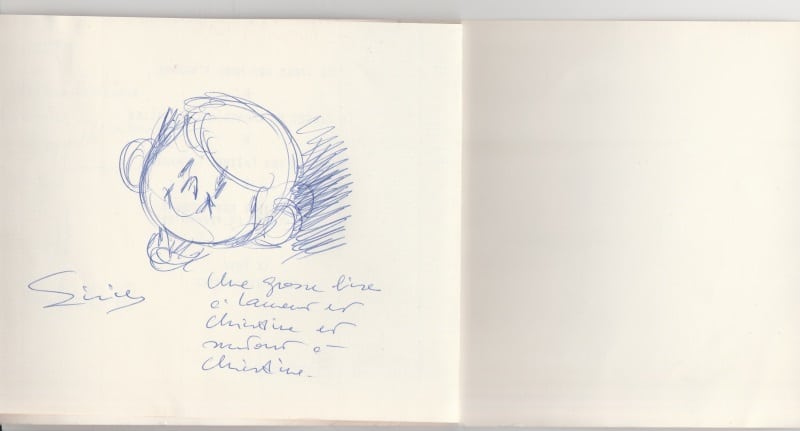 Sirius
Une grosse bise
à Laurent et
Christine et
surtout à
Christine.